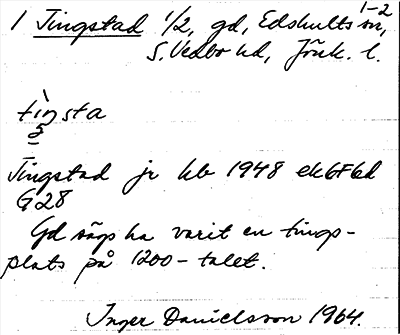 1-2
1 Tingstad 1/2, gd, Edshults sn,
S. Vedbo hd, Jönk. l.
tìŋsta
Tingstad jr hb 1948 ek 6F6d
G28
Gd sägs ha varit en tings-
plats på 1200-talet.
Inger Danielsson 1964.